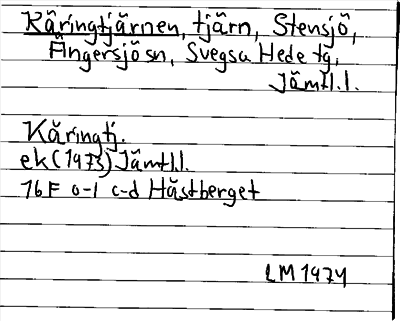 Käringtjärnen, tjärn, Stensjö,
Ängersjö sn, Svegsa Hede tg,
Jämtl.l.
Käringtj.
ek (1973) Jämtl.l.
16F o-1 c-d Hästberget
LM 1974